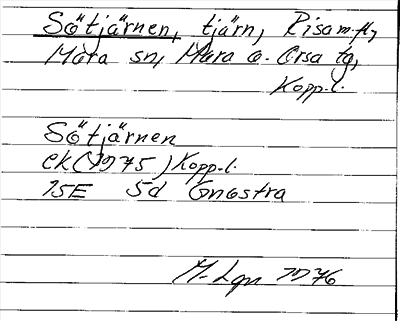 Sötjärnen, tjärn, Risa m.fl,
Mora sn, Mora o. Orsa tg,
Kopp. l.
Sötjärnen
ek (1975) Kopp. l.
15E 5d Gnostra
M-Lgn 1976